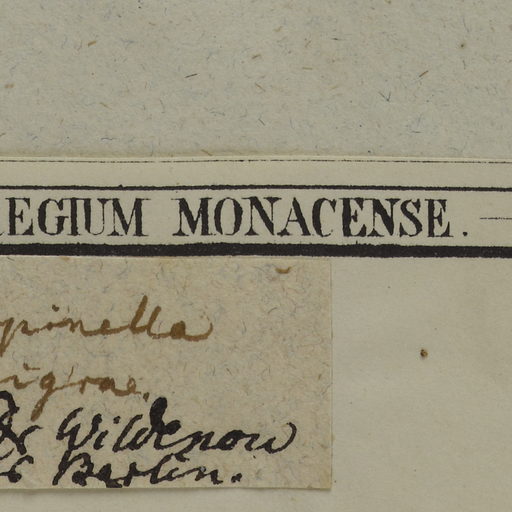 REGIUM MONACENSE.
pinella
igrae.
Dr Wildenow
Berlin.